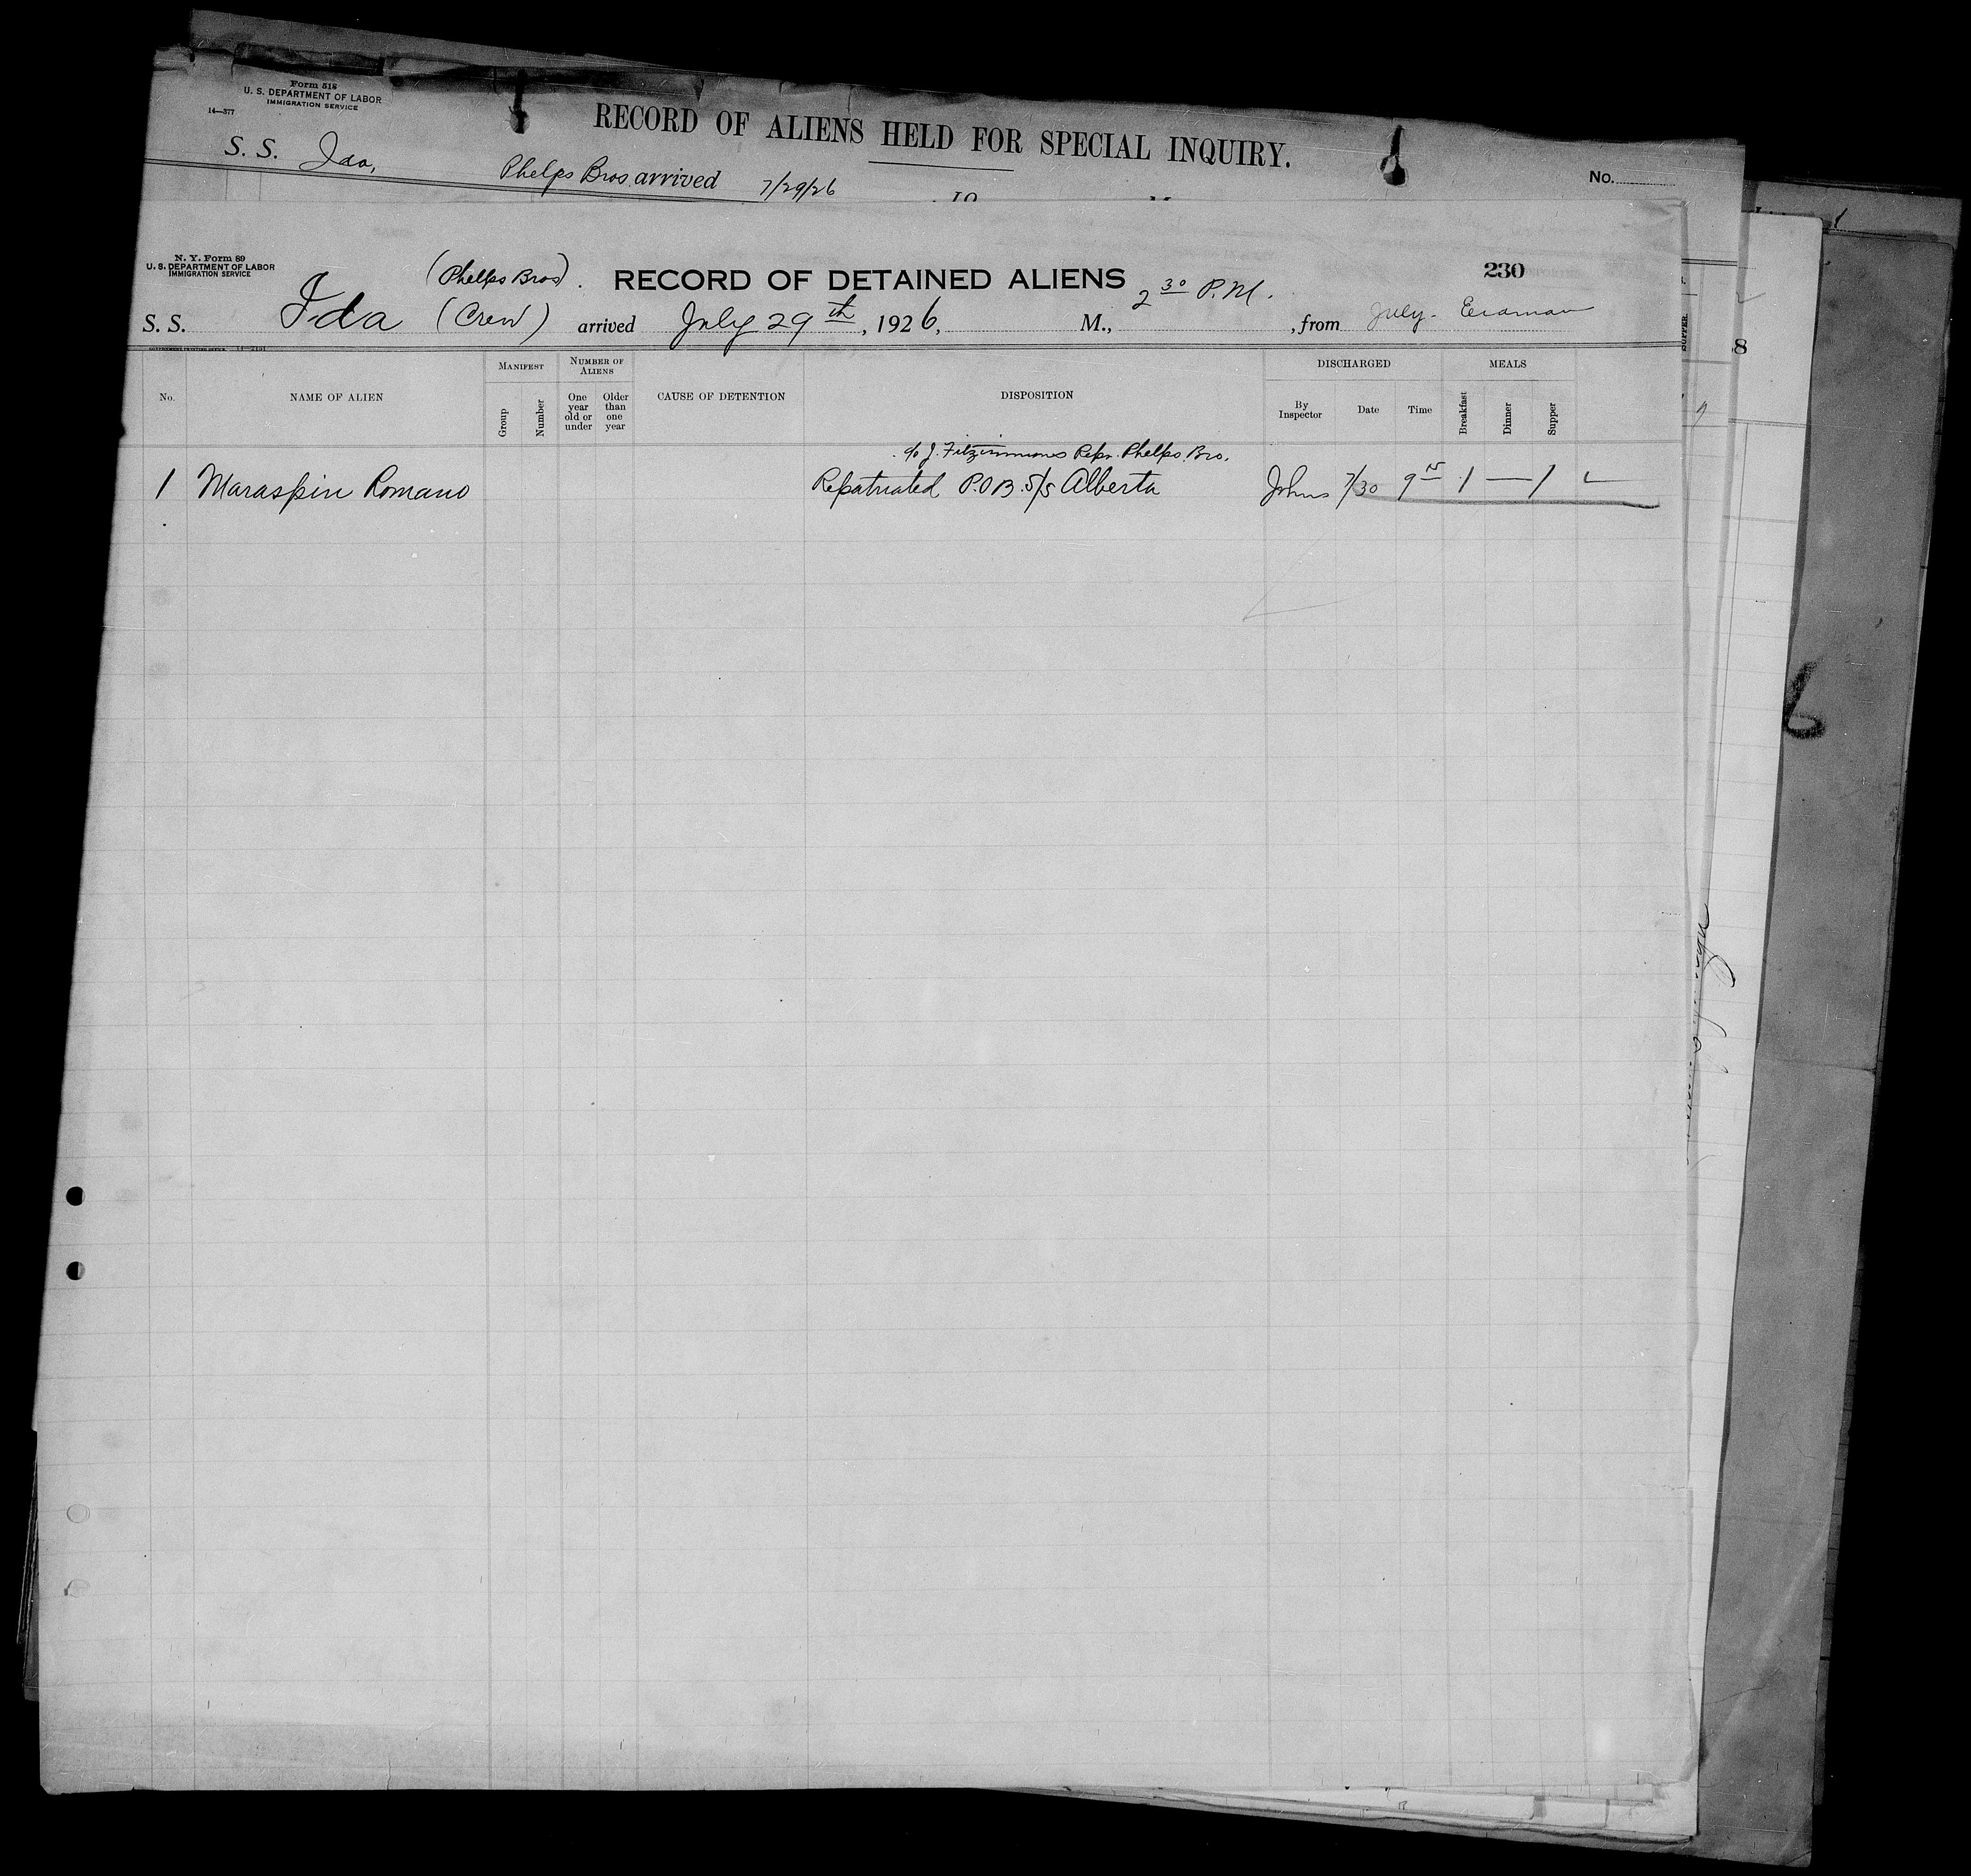 Form 518
U. S. DEPARTMENT OF LABOR
IMMIGRATION SERVICE
14—377
RECORD OF ALIENS HELD FOR SPECIAL INQUIRY.
S. S. Ida, Phelps Bros. arrived 7/29/26
No.
N. Y. Form 89
U. S. DEPARTMENT OF LABOR
IMMIGRATION SERVICE
(Phelps Bros).
RECORD OF DETAINED ALIENS
230
2 30 P.M.
S. S. Ida (Crew) arrived July 29th, 1926, M., , from July-
No.
NAME OF ALIEN
MANIFEST
Group
Number
NUMBER OF ALIENS
One year old or under
Older than one year
CAUSE OF DETENTION
DISPOSITION
DISCHARGED
By Inspector
Date
Time
MEALS
Breakfast
Dinner
Supper
c/o J. Fitzimmons Repr. Phelps Bro.
1 Maraspin Romano Repatriated P.O.B. S/S Alberta Johns 7/30 9 15 1 — 1